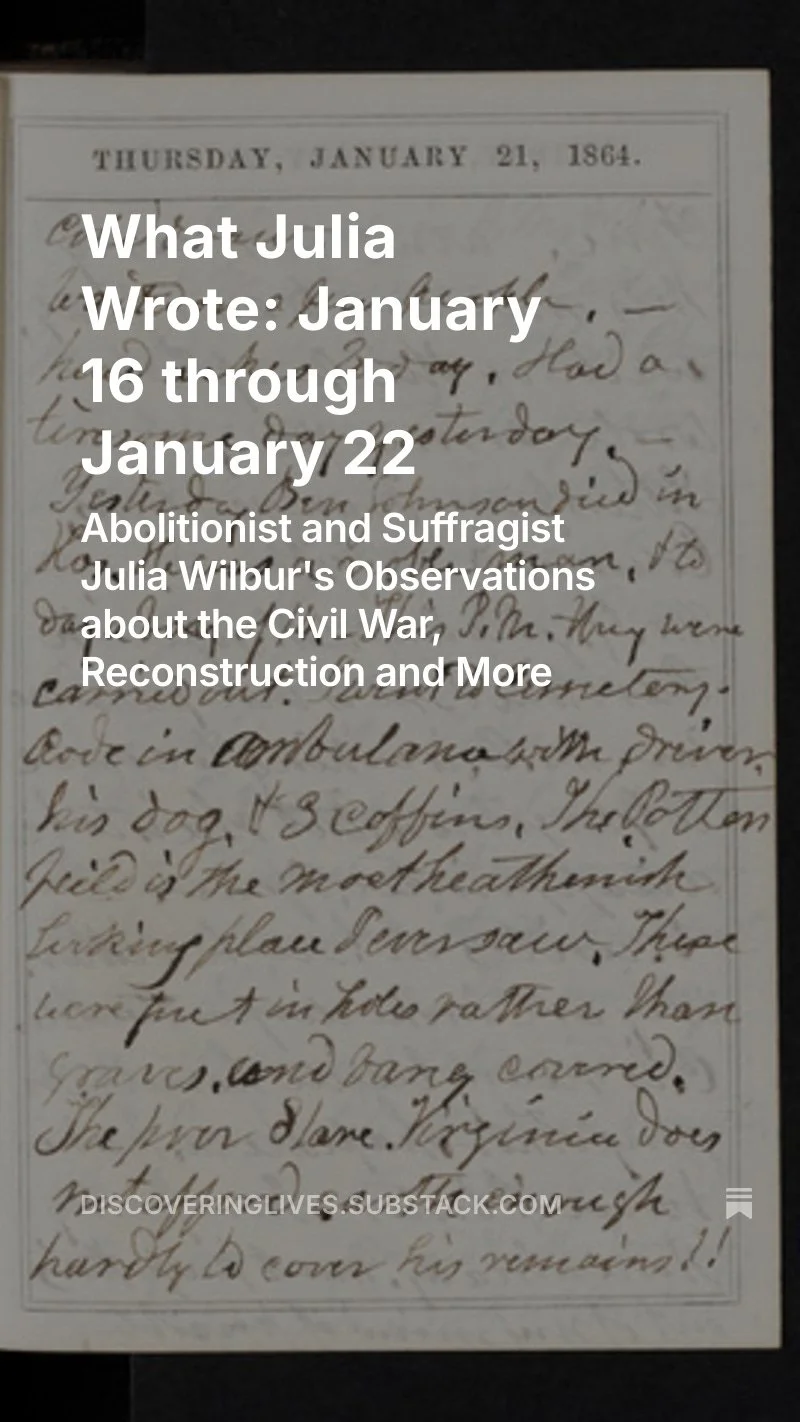 THURSDAY, JANUARY 21, 1864.
What Julia
Wrote: January
16 through
January 22
Abolitionist and Suffragist
Julia Wilbur's Observations
about the Civil War,
Reconstruction and More
day. Had a
day yesterday. —
Yesterday Ben Johnson died in
man, & to
P.M. they were
carried out. I went to cemetery.
Rode in ambulance with driver,
his dog, & 3 coffins. The Potters
field is the most heathenish
looking place I ever saw. These
were put in holes rather than
graves, and barely covered.
The poor Slave. Virginia does
not afford earth enough
hardly to cover his remains!!
DISCOVERINGLIVES.SUBSTACK.COM